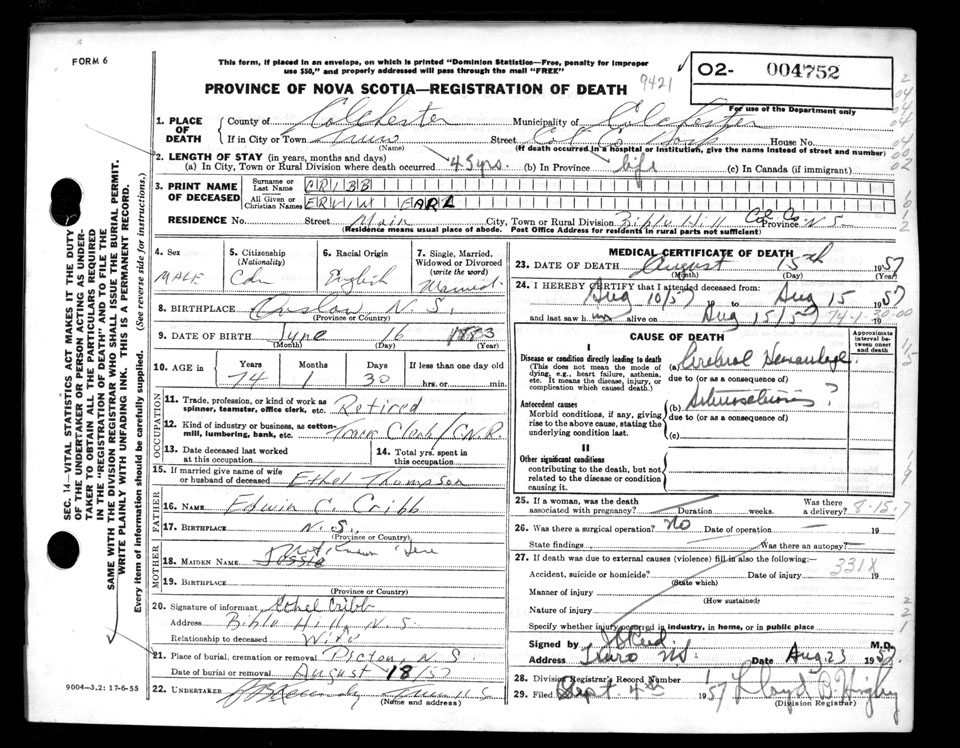 FORM 6
This form, if placed in an envelope, on which is printed "Dominion Statistics—Free, penalty for improper
use $50," and properly addressed will pass through the mail "FREE"
9421
02- 004752
For use of the Department only
PROVINCE OF NOVA SCOTIA—REGISTRATION OF DEATH
1. PLACE OF DEATH
County of Colchester Municipality of Colchester
If in City or Town Truro Street Col. Co. Hosp House No.
(Name) (If death occurred in a hospital or institution, give the name instead of street and number)
2. LENGTH OF STAY (in years, months and days)
(a) In City, Town or Rural Division where death occurred 45 yrs. (b) In Province life (c) In Canada (if immigrant)
3. PRINT NAME OF DECEASED
Surname or Last Name CRIBB
All Given or Christian Names ERWIN EARL
RESIDENCE No. Street Main City, Town or Rural Division Bible Hill Col. Co. Province N S
(Residence means usual place of abode. Post Office Address for residents in rural parts not sufficient)
4. Sex MALE
5. Citizenship (Nationality) Cdn
6. Racial Origin English
7. Single, Married, Widowed or Divorced (write the word) Married
8. BIRTHPLACE Onslow, N.S.
(Province or Country)
9. DATE OF BIRTH June 16 1883
(Month) (Day) (Year)
10. AGE in Years Months Days If less than one day old
74 1 30 hrs. or min.
OCCUPATION
11. Trade, profession, or kind of work as spinner, teamster, office clerk, etc. Retired
12. Kind of industry or business, as cotton-mill, lumbering, bank, etc. Clerk / C.N.R.
13. Date deceased last worked at this occupation
14. Total yrs. spent in this occupation
15. If married give name of wife or husband of deceased Ethel Thompson
FATHER
16. NAME Edwin C. Cribb
17. BIRTHPLACE N.S.
(Province or Country)
MOTHER
18. MAIDEN NAME Jessie
19. BIRTHPLACE
(Province or Country)
20. Signature of informant Ethel Cribb
Address Bible Hill, N.S.
Relationship to deceased Wife
21. Place of burial, cremation or removal Pictou, N.S.
Date of burial or removal August 18/57
22. UNDERTAKER Truro N.S.
(Name and address)
9004—3.2: 17-6-55
SEC. 14—VITAL STATISTICS ACT MAKES IT THE DUTY
OF THE UNDERTAKER OR PERSON ACTING AS UNDER-
TAKER TO OBTAIN ALL THE PARTICULARS REQUIRED
IN THE "REGISTRATION OF DEATH" AND TO FILE THE
SAME WITH THE DIVISION REGISTRAR WHO SHALL ISSUE THE BURIAL PERMIT.
WRITE PLAINLY WITH UNFADING INK. THIS IS A PERMANENT RECORD.
Every item of information should be carefully supplied. (See reverse side for instructions.)
MEDICAL CERTIFICATE OF DEATH
23. DATE OF DEATH August 15th 1957
(Month) (Day) (Year)
24. I HEREBY CERTIFY that I attended deceased from:
Aug 10/57 to Aug 15 1957
and last saw him alive on Aug 15/57 19
74-1-30-00
CAUSE OF DEATH
Approximate interval between onset and death
I
Disease or condition directly leading to death
(This does not mean the mode of dying, e.g., heart failure, asthenia, etc. It means the disease, injury, or complication which caused death.)
(a) Cerebral Hemorrhage
due to (or as a consequence of)
Antecedent causes
Morbid conditions, if any, giving rise to the above cause, stating the underlying condition last.
(b) Arteriosclerosis
due to (or as a consequence of)
(c)
II
Other significant conditions
contributing to the death, but not related to the disease or condition causing it.
25. If a woman, was the death associated with pregnancy? Duration weeks. Was there a delivery?
8-15-7
26. Was there a surgical operation? No Date of operation 19
State findings Was there an autopsy?
27. If death was due to external causes (violence) fill in also the following:—
331X
Accident, suicide or homicide? Date of injury 19
(State which)
Manner of injury
(How sustained)
Nature of injury
Specify whether injury occurred in industry, in home, or in public place
Signed by Reid M.D.
Address Truro NS Date Aug 23 1957
28. Division Registrar's Record Number
29. Filed Sept 4th 1957 Lloyd B.
(Division Registrar)